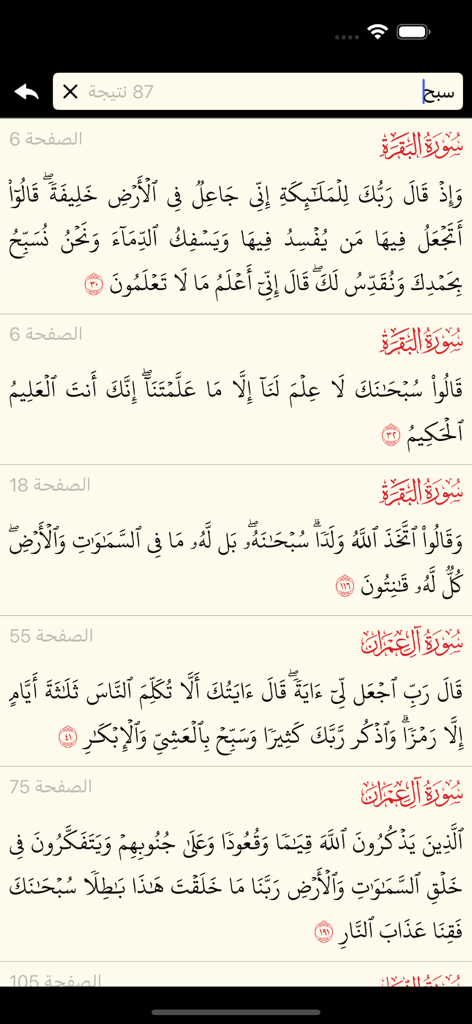 سبح
87 نتيجة
سُورَةُ البَقَرَةِ
الصفحة 6
وَإِذۡ قَالَ رَبُّكَ لِلۡمَلَٰٓئِكَةِ إِنِّي جَاعِلٞ فِي ٱلۡأَرۡضِ خَلِيفَةٗۖ قَالُوٓاْ
أَتَجۡعَلُ فِيهَا مَن يُفۡسِدُ فِيهَا وَيَسۡفِكُ ٱلدِّمَآءَ وَنَحۡنُ نُسَبِّحُ
بِحَمۡدِكَ وَنُقَدِّسُ لَكَۖ قَالَ إِنِّيٓ أَعۡلَمُ مَا لَا تَعۡلَمُونَ ٣٠
سُورَةُ البَقَرَةِ
الصفحة 6
قَالُواْ سُبۡحَٰنَكَ لَا عِلۡمَ لَنَآ إِلَّا مَا عَلَّمۡتَنَآۖ إِنَّكَ أَنتَ ٱلۡعَلِيمُ
ٱلۡحَكِيمُ ٣٢
سُورَةُ البَقَرَةِ
الصفحة 18
وَقَالُواْ ٱتَّخَذَ ٱللَّهُ وَلَدٗاۗ سُبۡحَٰنَهُۥۖ بَل لَّهُۥ مَا فِي ٱلسَّمَٰوَٰتِ وَٱلۡأَرۡضِۖ
كُلّٞ لَّهُۥ قَٰنِتُونَ ١١٦
سُورَةُ آلِ عِمۡرَانَ
الصفحة 55
قَالَ رَبِّ ٱجۡعَل لِّيٓ ءَايَةٗۖ قَالَ ءَايَتُكَ أَلَّا تُكَلِّمَ ٱلنَّاسَ ثَلَٰثَةَ أَيَّامٍ
إِلَّا رَمۡزٗاۗ وَٱذۡكُر رَّبَّكَ كَثِيرٗا وَسَبِّحۡ بِٱلۡعَشِيِّ وَٱلۡإِبۡكَٰرِ ٤١
سُورَةُ آلِ عِمۡرَانَ
الصفحة 75
ٱلَّذِينَ يَذۡكُرُونَ ٱللَّهَ قِيَٰمٗا وَقُعُودٗا وَعَلَىٰ جُنُوبِهِمۡ وَيَتَفَكَّرُونَ فِي
خَلۡقِ ٱلسَّمَٰوَٰتِ وَٱلۡأَرۡضِ رَبَّنَا مَا خَلَقۡتَ هَٰذَا بَٰطِلٗا سُبۡحَٰنَكَ
فَقِنَا عَذَابَ ٱلنَّارِ ١٩١
الصفحة 105